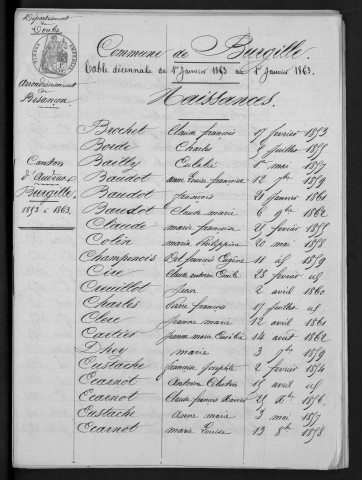 Département
du
Doubs
Arrondissement
de
Besançon
Canton
d'Audeux
Burgille
1853 à 1863.
Commune de Burgille.
Table décennale du 1er Janvier 1853 au 1er Janvier 1863.
Naissances.
Brochet Claude françois 17 février 1853
Borde Charles juillet 1855
Bailly Eulalie 1er mai 1857
Baudot anne Louise françoise 12 9bre 1859
Baudot françois 21 janvier 1861
Baudot Claude marie 6 9bre 1862
Claude marie françoise 25 février 1855
Colin marie philippine 20 mai 1858
Champenois Del françois Eugène 11 id 1859
Cire Claude antoine Emile 23 février id
Cuillot Jean 2 avril 1860
Charles Pierre françois 17 juillet id
Clerc Jeanne marie 12 avril 1861
Cartier Jeanne marie 14 août 1862
Dhey marie 3 7bre 1859
Eustache francoise josephte 2 février 1854
Ecarnot Antoine Célestin 15 avril id
Ecarnot Claude francois Xavier 25 Xbre 1856
Eustache Anne marie 3 mai 1857
Ecarnot marie Louise 13 8bre 1858